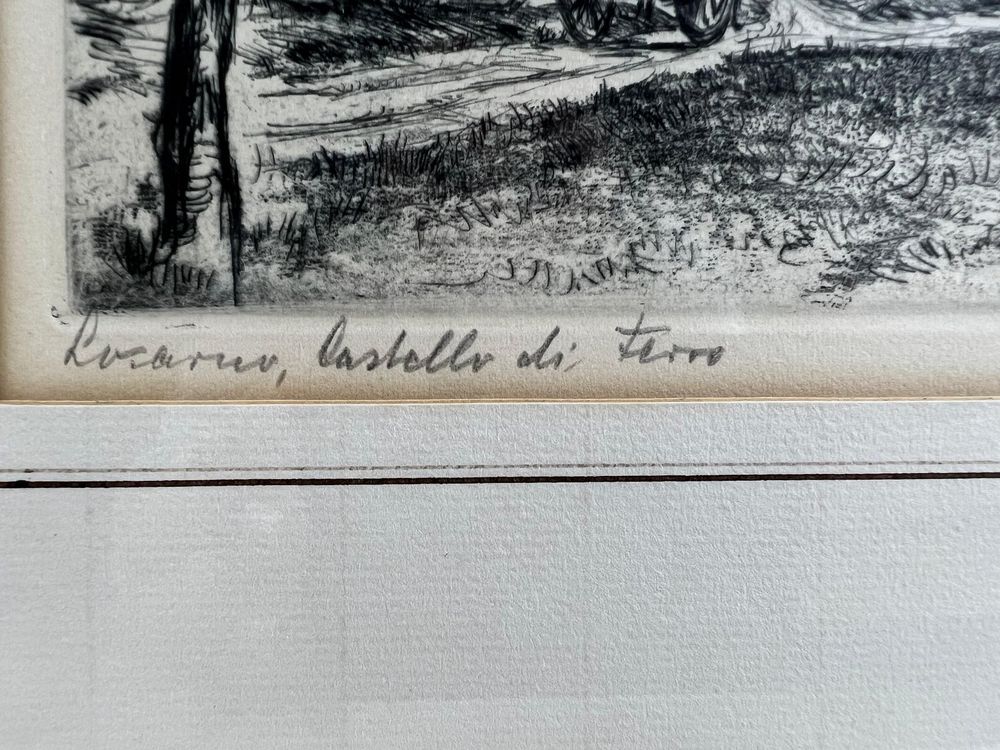 Locarno, Castello di Ferro